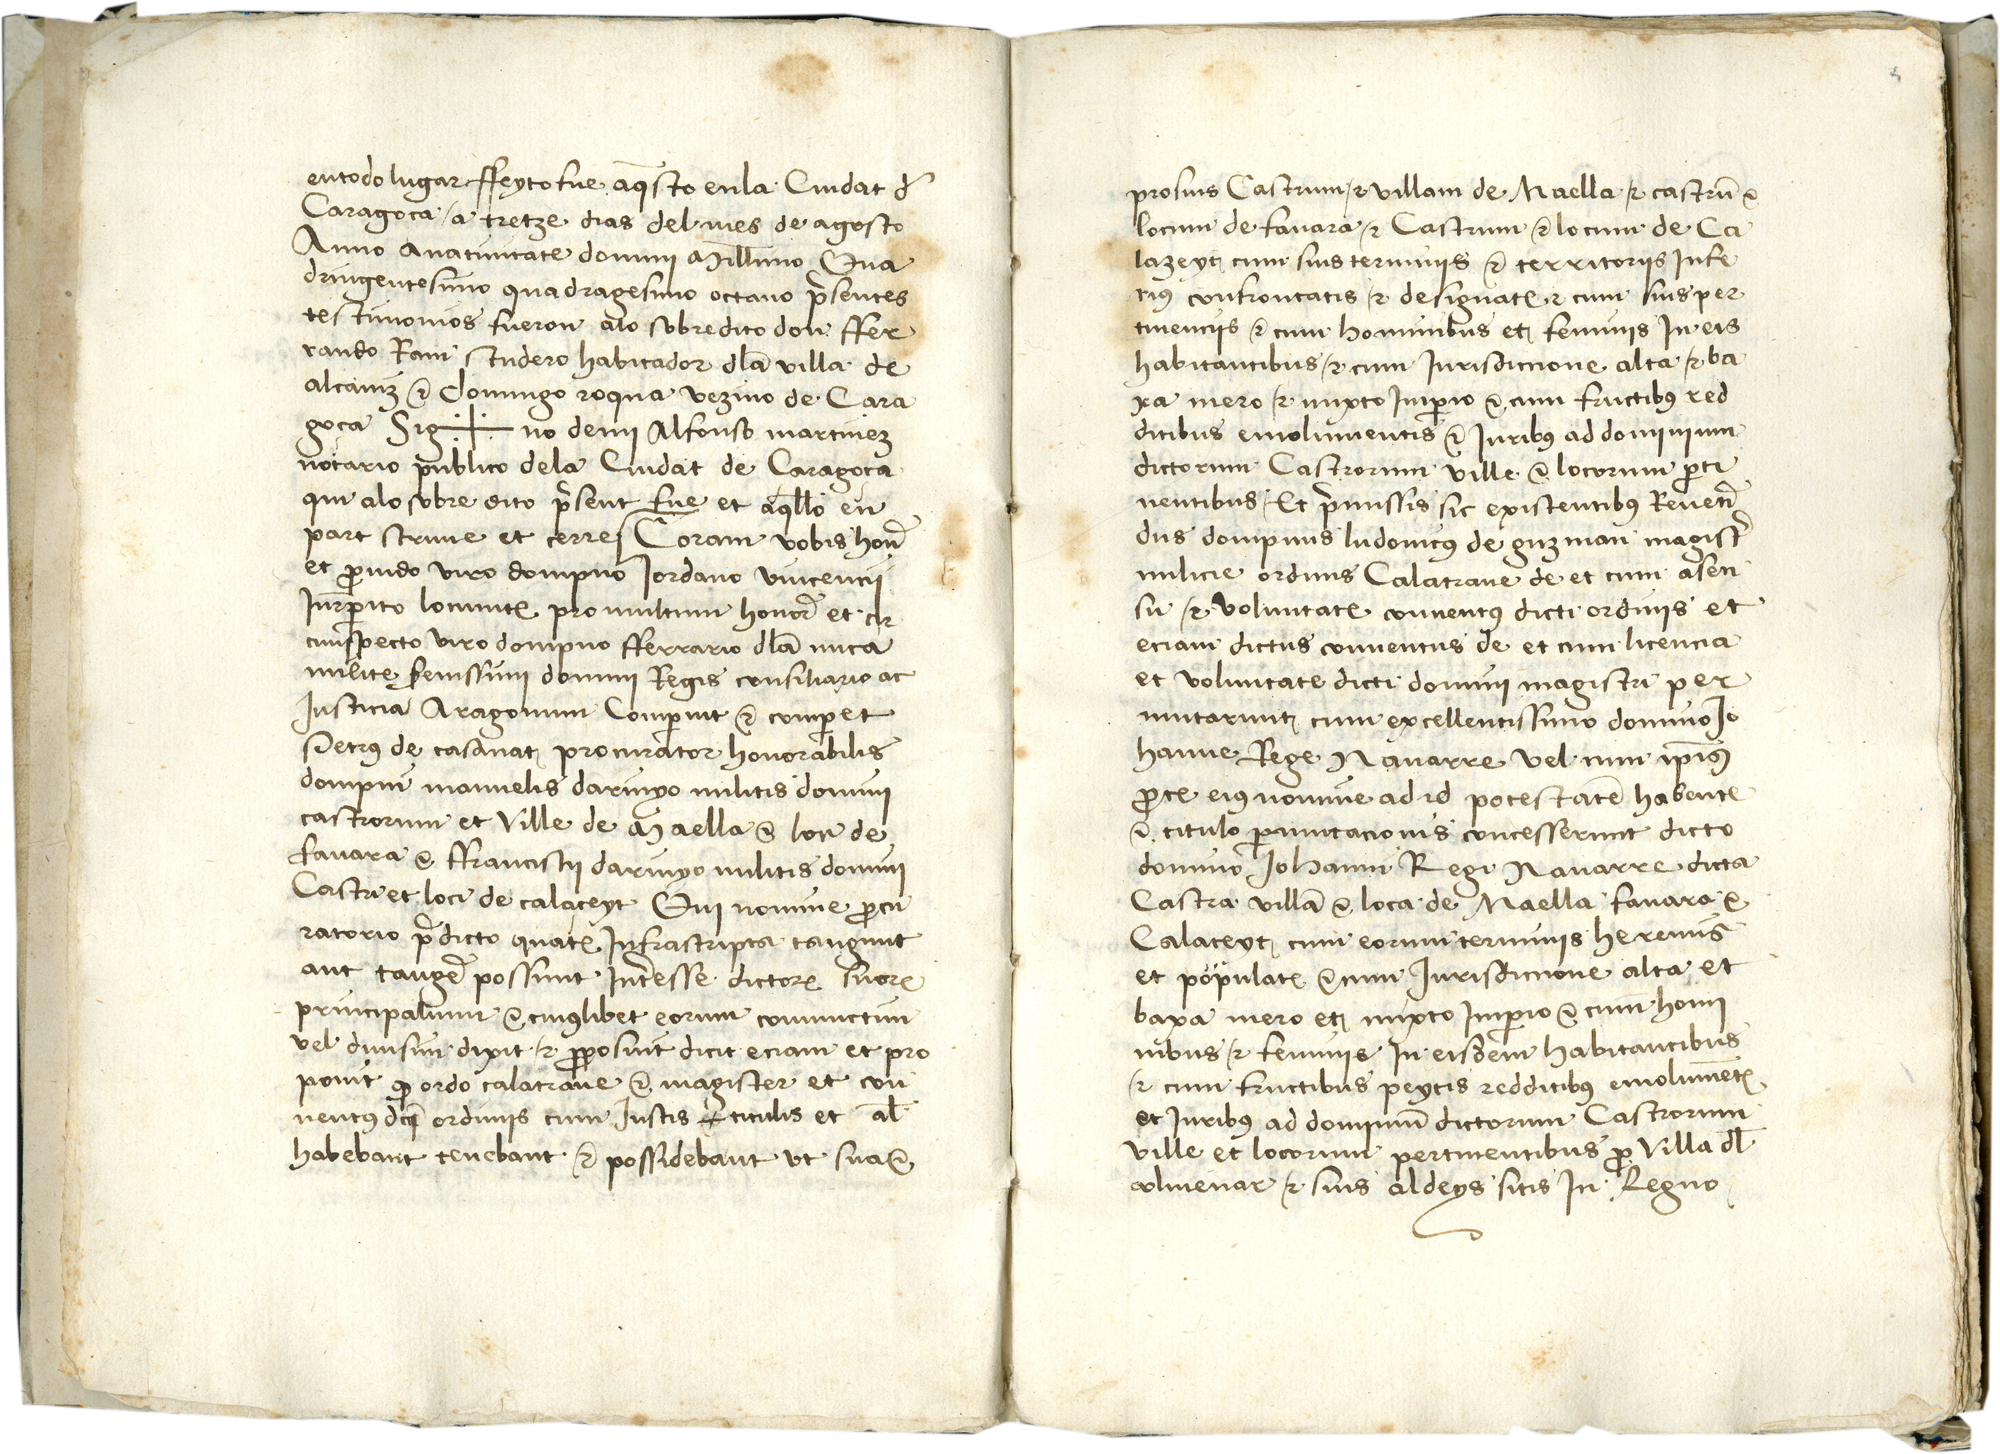 entodo lugar ffeyto fue aq̄sto enla Ciudat d'
Caragoca a tretze dias del mes de agosto
Anno anatiuitate domini Mill̄imo Qua
dringentesimo quadragesimo octauo p̄sentes
testimonios fueron alo sobredito don ffer
rando Ram scudero habitador dl̄a villa de
alcaniz & Domingo roqua vezino de Cara
goça Sig no de mi Alfonso martinez
notario publico dela Ciudat de Caragoça
qui alo sobre dito p̄sent fue et aq̄llo en
part scriuie et cerre Coram vobis hon̄
et ꝓuido viro dompno Jordano vincencii
Jur̄perito locumteꝫ pro multum honor̄ et cir
cumspecto viro dompno fferrario dl̄a nuca
milite serenissimi domini Regis consiliario ac
Justicia Aragonum Comparuit & comparet
Petrus de casanat procurator honorabilis
dompni manuelis darinyo militis domini
castrorum et Ville de Maella & loci de
fauara & ffrancisci darinyo militis domini
Castri et loci de calaceyt Qui nomine ꝓcu
ratorio p̄dicto quateꝫ Infrascripta tangunt
aut tanger̄ possunt Int̄esse dictoꝝ suoꝝ
principalium & cuiuslibet eorum coniunctim
vel diuisim dixit & ꝓposuit dicit eciam et pro
ponit ꝙ ordo calatraue & magister et con
uentus dc̄i ordinis cum Justis titulis et al̄
habebant tenebant & possidebant vt sua &
prosuis Castrum & villam de Maella & castrū &
locum de fauara & Castrum & locum de Ca
lazeyt cum suis terminis & territoriis Infe
rius confrontatis & designateꝫ & cum suis per
tinenciis & cum hominibus et feminis In eis
habitantibus & cum Jurisdiccione alta & ba
xa mero & mixto Imperio & cum fructibus red
ditibus emolumentis & Juribus ad dominium
dictorum Castrorum ville & locorum ꝑti
nentibus Et p̄missis sic existentibus Reuerē
dus dompnus ludouicus de guzman magist̄
milicie ordinis Calatraue de et cum asen
su & voluntate conuentus dicti ordinis et
eciam dictus conuentus de et cum licencia
et voluntate dicti domini magistri per
mutarunt cum excellentissimo domino Jo
hanne Rege Nauarre vel cum ip̄ius
ꝓcᵉ eius nomine ad id potestatē habente
& titulo ꝑmutacionis concesserunt dicto
domino Johanni Regi Nauarre dicta
Castra villā & loca de Maella fauara &
Calaceyt cum eorum terminis heremis
et populateꝫ & cum Jurisdiccione alta et
baxa mero et mixto Imperio & cum homi
nibus & feminis In eisdem habitantibus
& cum fructibus peytis redditibus emolumētꝫ
et Juribus ad dominiū dictorum Castrorum
ville et locorum pertinentibus ꝓ Villa dl̄
colmenar & suis aldeys sitis In Regno